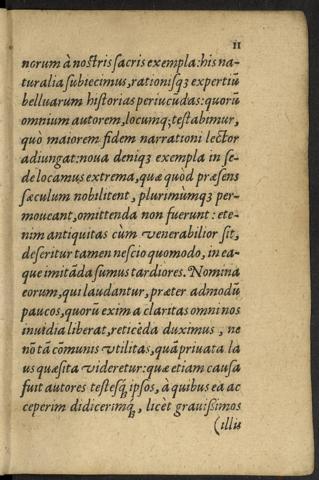 11
norum à nostris sacris exempla: his na-
turalia subiecimus, rationisqꝫ expertiũ
belluarum historias periucũdas: quorũ
omnium autorem, locumq; testabimur,
quò maiorem fidem narrationi lector
adiungat: noua deniqꝫ exempla in se-
de locamus extrema, quæ quòd præsens
sæculum nobilitent, plurimùmqꝫ per-
moueant, omittenda non fuerunt: ete-
nim antiquitas cùm venerabilior sit,
deseritur tamen nescio quomodo, in ea-
que imitãda sumus tardiores. Nomina
eorum, qui laudantur, præter admodũ
paucos, quorũ eximia claritas omni nos
inuidia liberat, reticẽda duximus, ne
nõ tã cõmunis vtilitas, quã priuata la
us quæsita videretur: quæ etiam causa
fuit autores testesqꝫ ipsos, à quibus ea ac
ceperim didicerimqꝫ, licèt grauissimos
(illis